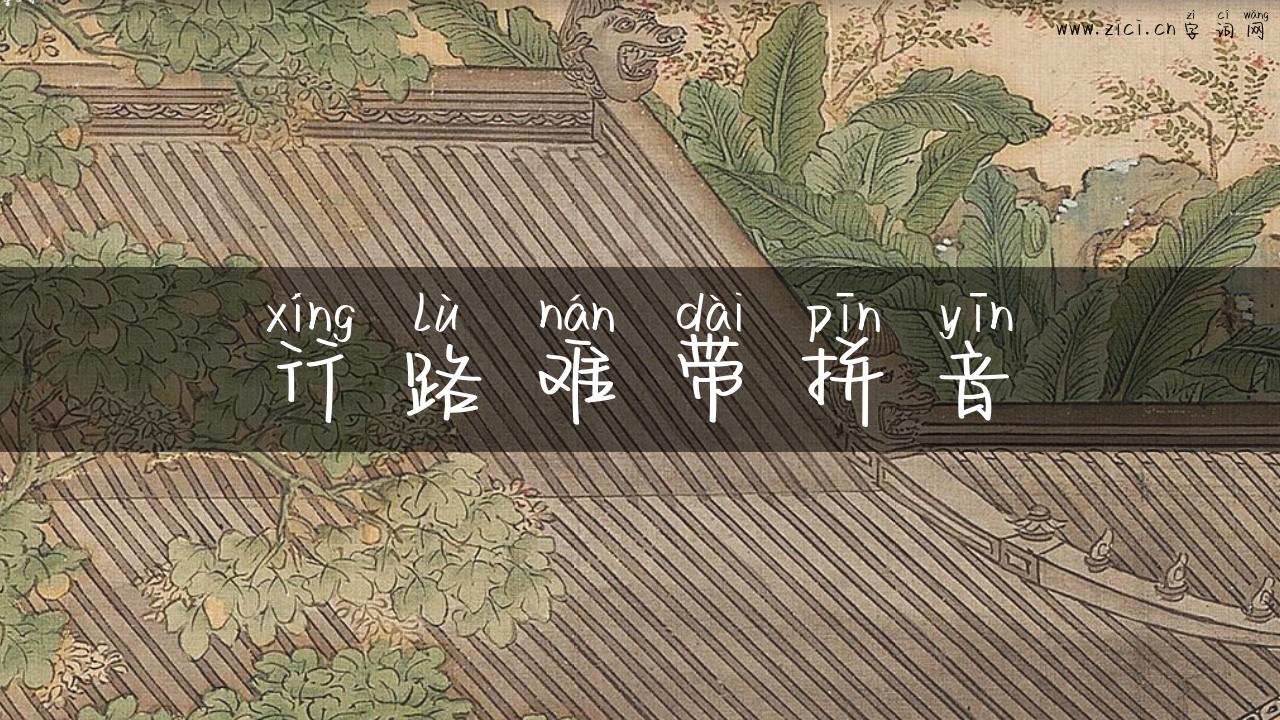 zì cí wǎng
www.zici.cn 字词网
xíng lù nán dài pīn yīn
行路难带拼音